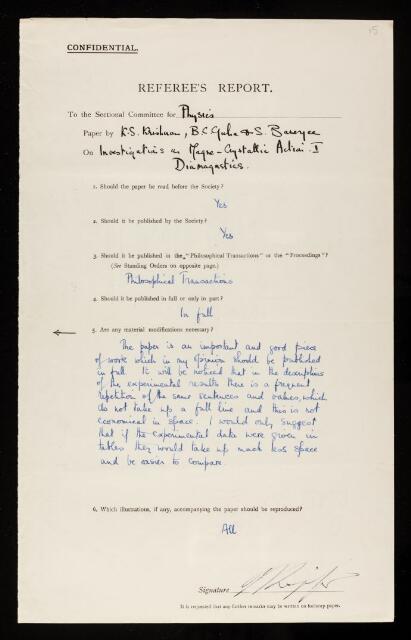 15
CONFIDENTIAL.
REFEREE'S REPORT.
To the Sectional Committee for Physics
Paper by K.S. Krishnan, B.C. Guha & S. Banerjee
On Investigations on Magne-Crystallic Action. I
Diamagnetics.
1. Should the paper be read before the Society?
Yes
2. Should it be published by the Society?
Yes
3. Should it be published in the "Philosophical Transactions" or the "Proceedings"?
(See Standing Orders on opposite page.)
Philosophical Transactions
4. Should it be published in full or only in part?
In full
5. Are any material modifications necessary?
The paper is an important and good piece
of work which in my opinion should be published
in full. It will be noticed that in the description
of the experimental results there is a frequent
repetition of the same sentences and values, which
do not take up a full line and this is not
economical in space. I would only suggest
that if the experimental data were given in
tables they would take up much less space
and be easier to compare.
6. Which illustrations, if any, accompanying the paper should be reproduced?
All
Signature
It is requested that any further remarks may be written on foolscap paper.